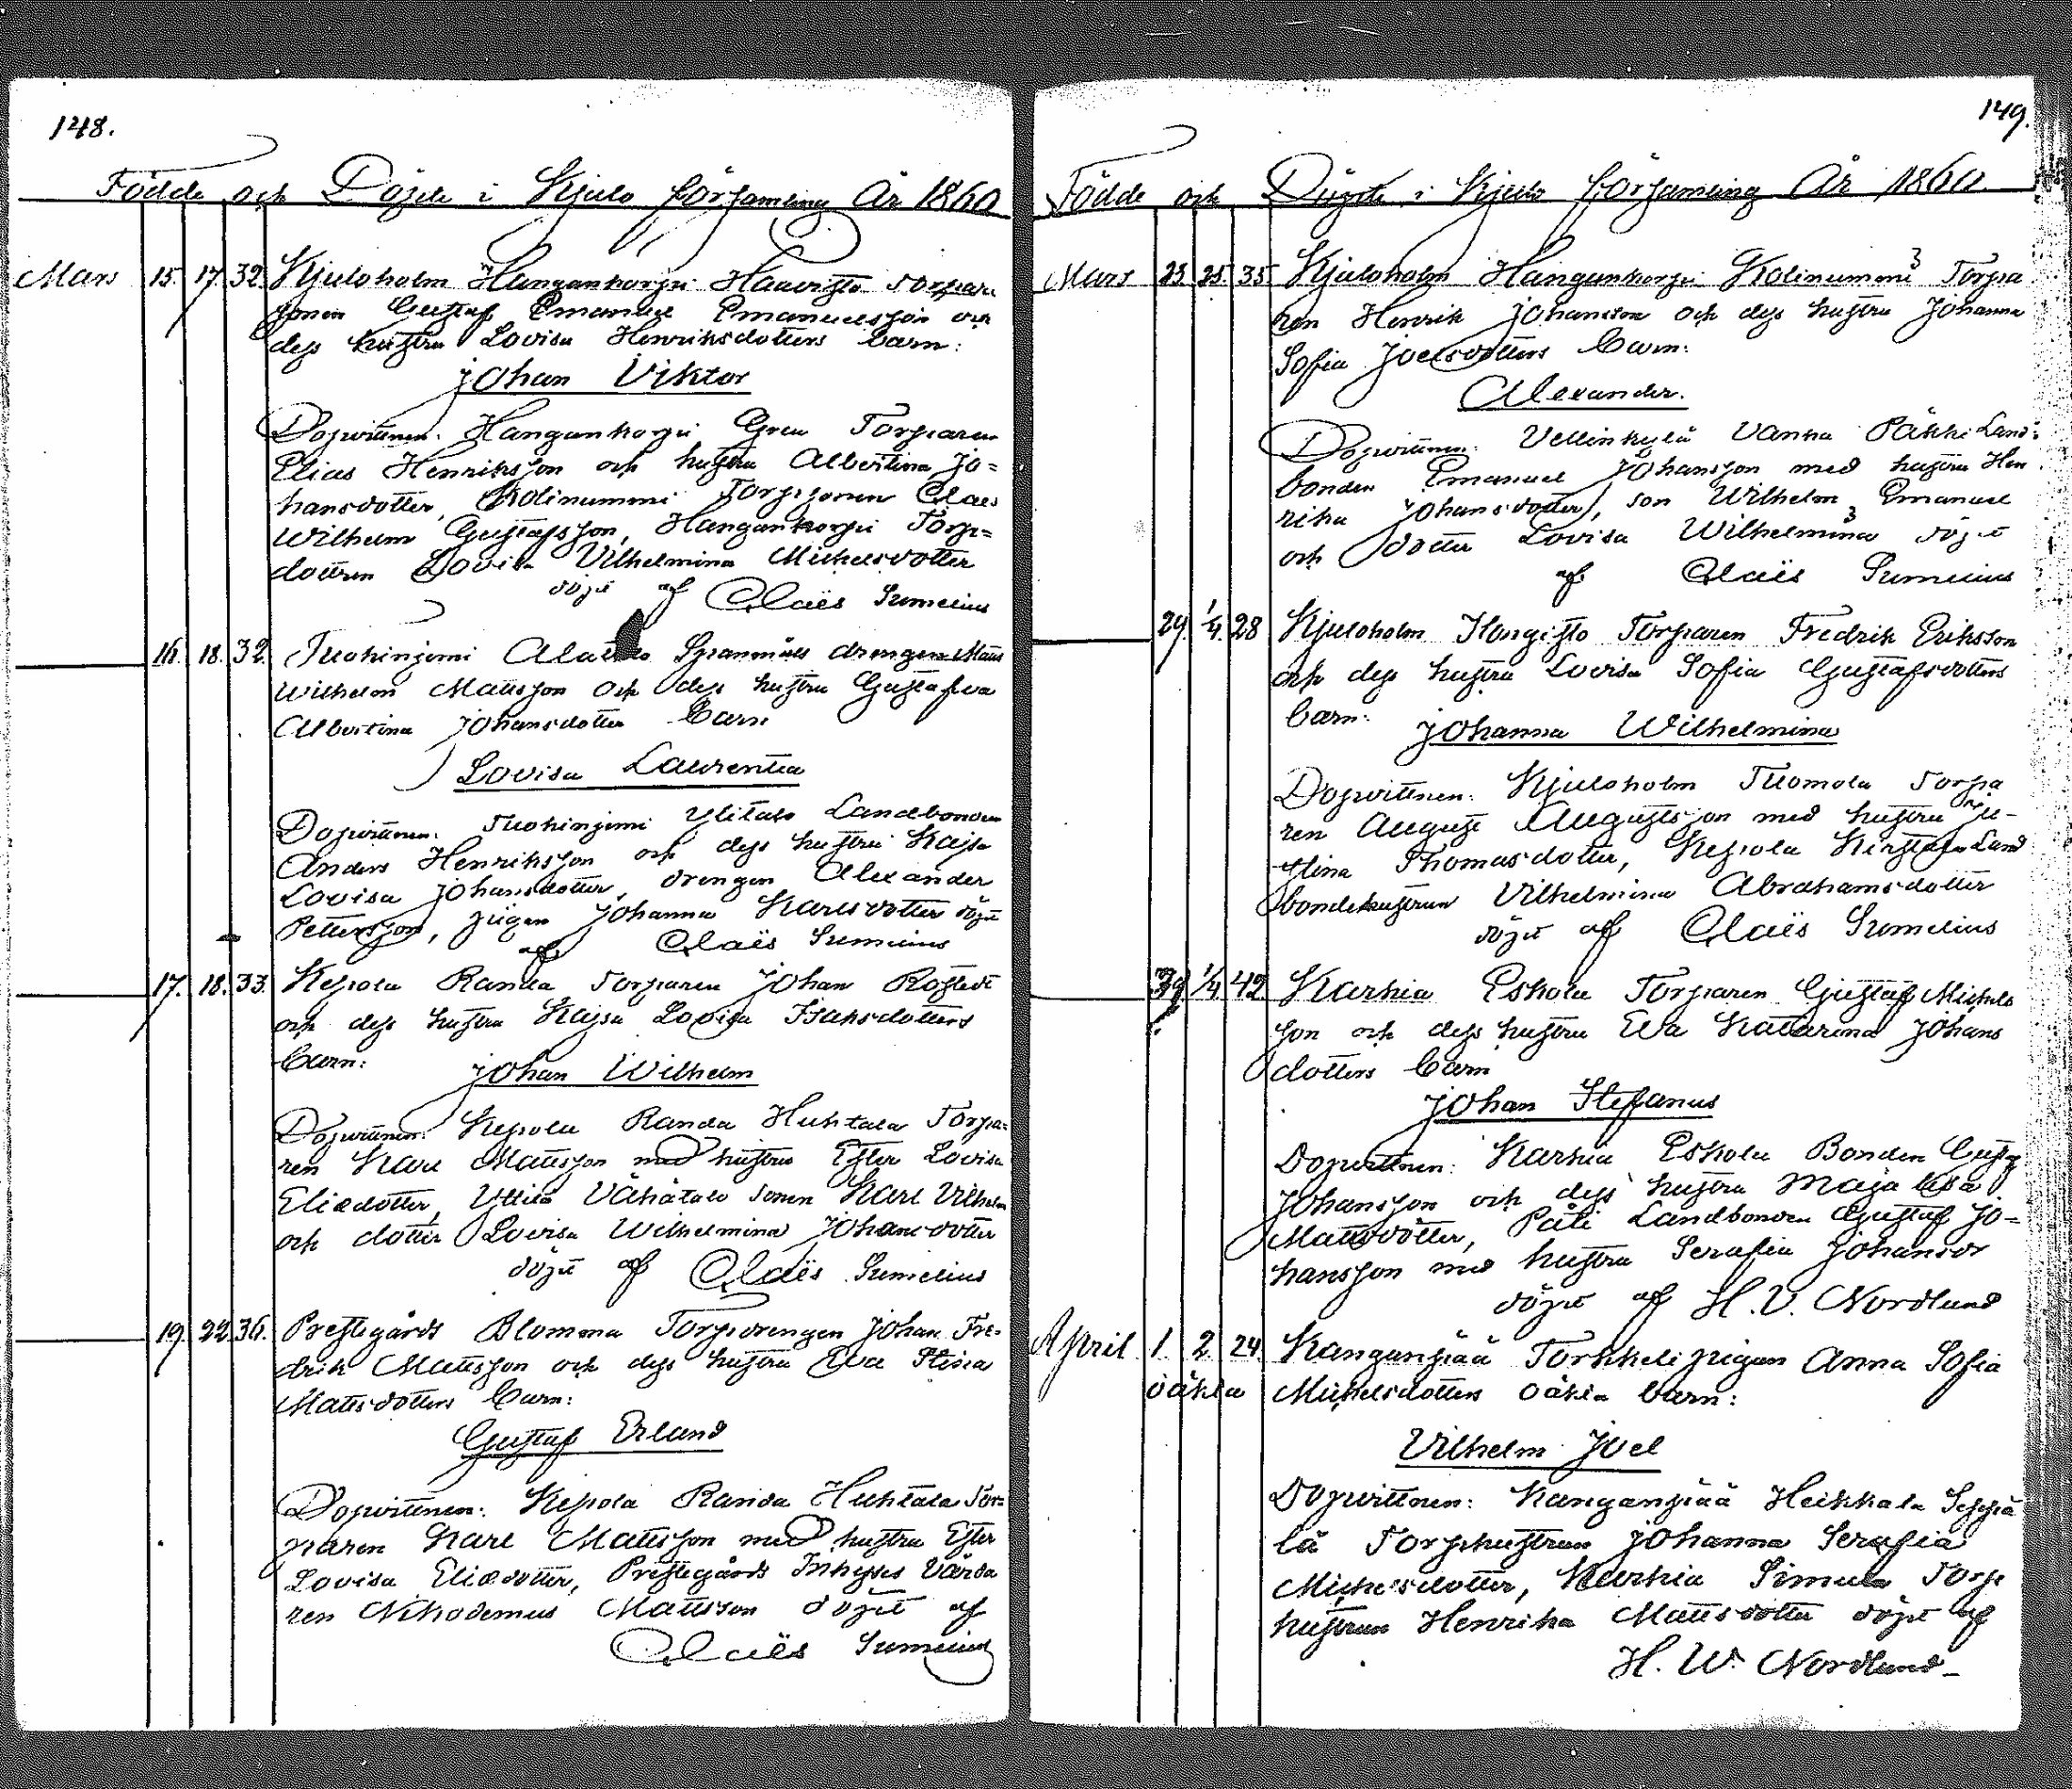 148.
Födde och Döpte i Kjulo församling År 1860
Mars 15. 17. 32. Kjuloholm Hangankorpi Haavisto Torpare
sonen Gustaf Emanuel Emanuelsson och
dess hustru Lovisa Henriksdotters barn:
Johan Viktor
Dopvittnen: Hangankorpi Torparen
Elias Henriksson och hustru Albertina Jo=
hansdotter, Kolinummi Torpsonen Claes
Wilhelm Gustafsson, Hangankorpi Torp=
dottren Lovisa Vilhelmina Michelsdotter
döpt af Claës Sumelius
16. 18. 32. Tuohinjemi drengen Matts
Wilhelm Mattsson och dess hustru Gustafva
Albertina Johansdotters barn
Lovisa Laurentia
Dopvittnen: Tuohinjemi Ylitalo Landbonden
Anders Henriksson och dess hustru Kajsa
Lovisa Johansdotter, drengen Alexander
Pettersson, pigan Johanna Karlsdotter döpt
af Claës Sumelius
17. 18. 33. Kepola Randa Torparen Johan Rostedt
och dess hustru Kajsa Lovisa Isaksdotters
barn: Johan Wilhelm
Dopvittnen: Kepola Randa Huhtala Torpa=
ren Karl Mattsson med hustru Ester Lovisa
Eliædotter, Uttila Vähätalo sonen Karl Vilhelm
och dotter Lovisa Wilhelmina Johansdotter
döpt af Claës Sumelius
19. 22. 36. Prestegårds Blomma Torpdrengen Johan Fre-
drik Mattsson och dess hustru Eva Stina
Mattsdotters barn:
Gustaf Erland
Dopvittnen: Kepola Randa Huhtala Tor=
paren Karl Mattsson med hustru Ester
Lovisa Eliædotter, Prestegårds Inhyses
Nikodemus Mattsson döpt af
Claës Sumelius
149.
Födde och Döpte i Kjulo församling År 1860.
Mars 23. 25. 35. Kjuloholm Hangankorpi Kolinummi Torpa
ren Henrik Johansson och dess hustru Johanna
Sofia Joelsdotters barn:
Alexander.
Dopvittnen: Vellinkylä Vanha Päkki Land=
bonden Emanuel Johansson med hustru Hen
rika Johansdotter, son Wilhelm Emanuel
och dotter Lovisa Wilhelmina döpt
af Claës Sumelius
29. 1/4. 28 Kjuloholm Hongisto Torparen Fredrik Eriksson
och dess hustru Lovisa Sofia Gustafsdotters
barn: Johanna Wilhelmina
Dopvittnen: Kjuloholm Tuomola Torpa
ren August Augustsson med hustru Ju-
stina Thomasdotter, Kepola Land
bondehustrun Vilhelmina Abrahamsdotter
döpt af Claës Sumelius
1/4 42 Karhia Eskola Torparen Gustaf Michels
son och dess hustru Eva Katarina Johans
dotters barn
Johan Stefanus
Dopvittnen: Karhia Eskola Bonden Gustaf
Johansson och dess hustru Maja Lisa
Mattsdotter, Päti Landbonden Gustaf Jo=
hansson med hustru Serafia Johansdr
döpt af H. V. Nordlund
April 1. 2. 24. Kanganpää Torkkeli pigan Anna Sofia
oäkta Michelsdotters oäkta barn:
Vilhelm Joel
Dopvittnen: Kanganpää Heikkala Seppä
lä Torphustrun Johanna Serafia
Michelsdotter, Karhia Simula Torp
hustrun Henrika Mattsdotter döpt af
H. W. Nordlund